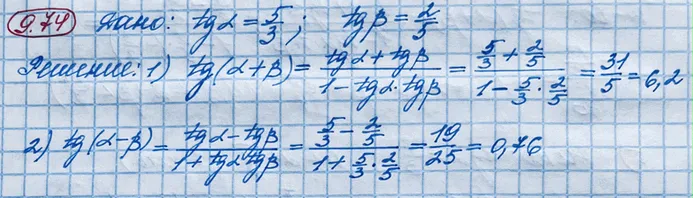 9.74 Дано: tg α = 5/3; tg β = 2/5
Решение: 1) tg(α+β) = (tg α + tg β)/(1 - tg α · tg β) = (5/3 + 2/5)/(1 - 5/3 · 2/5) = 31/5 = 6,2
2) tg(α-β) = (tg α - tg β)/(1 + tg α tg β) = (5/3 - 2/5)/(1 + 5/3 · 2/5) = 19/25 = 0,76